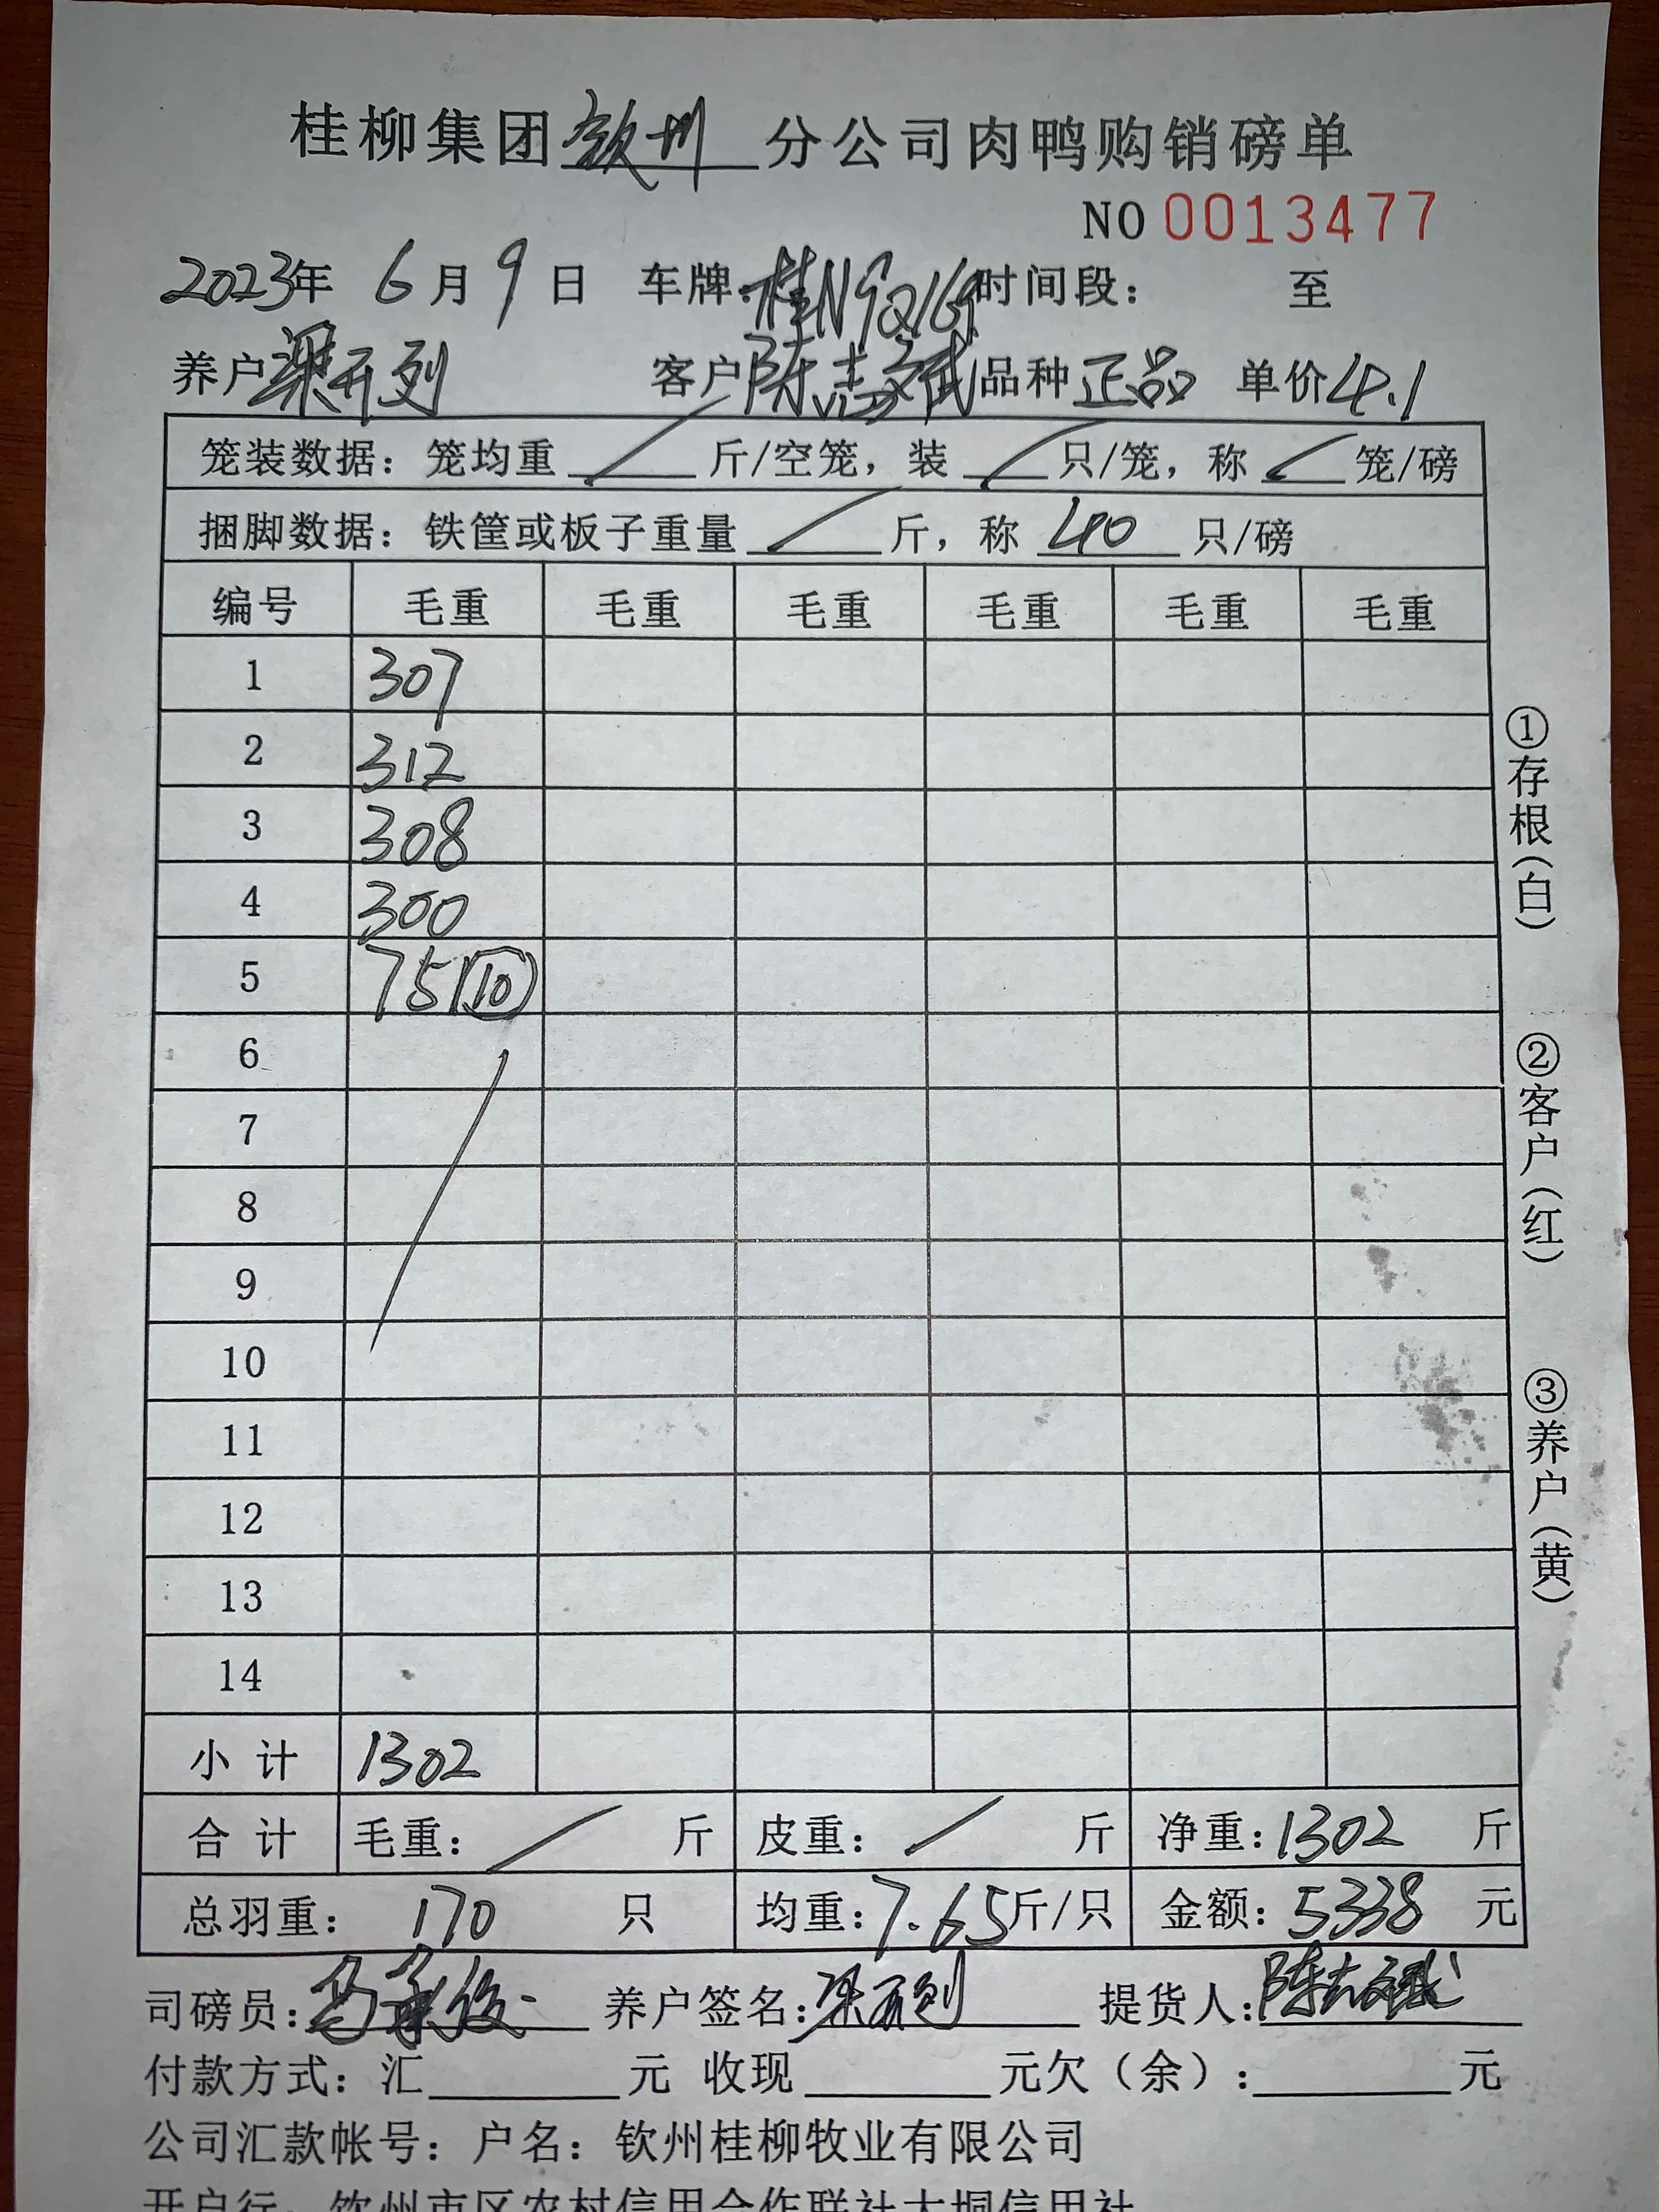 桂柳集团钦州分公司肉鸭购销磅单
NO 0013477
2023年 6月9日 车牌:桂N9Q169 时间段: 至
养户 梁开列 客户 陈志斌 品种 正品 单价4.1
笼装数据:笼均重 / 斤/空笼,装 / 只/笼,称 / 笼/磅
捆脚数据:铁筐或板子重量 / 斤,称 40 只/磅
编号 毛重 毛重 毛重 毛重 毛重 毛重
1 307
2 312
3 308
4 300
5 75 (10)
6
7
8
9
10
11
12
13
14
小计 1302
合计 毛重: / 斤 皮重: / 斤 净重:1302 斤
总羽重: 170 只 均重:7.65斤/只 金额:5338 元
司磅员: 养户签名:梁开列 提货人:陈志斌
付款方式:汇 元 收现 元欠(余): 元
公司汇款帐号:户名:钦州桂柳牧业有限公司
开户行:钦州市区农村信用合作联社大垌信用社
①存根(白) ②客户(红) ③养户(黄)